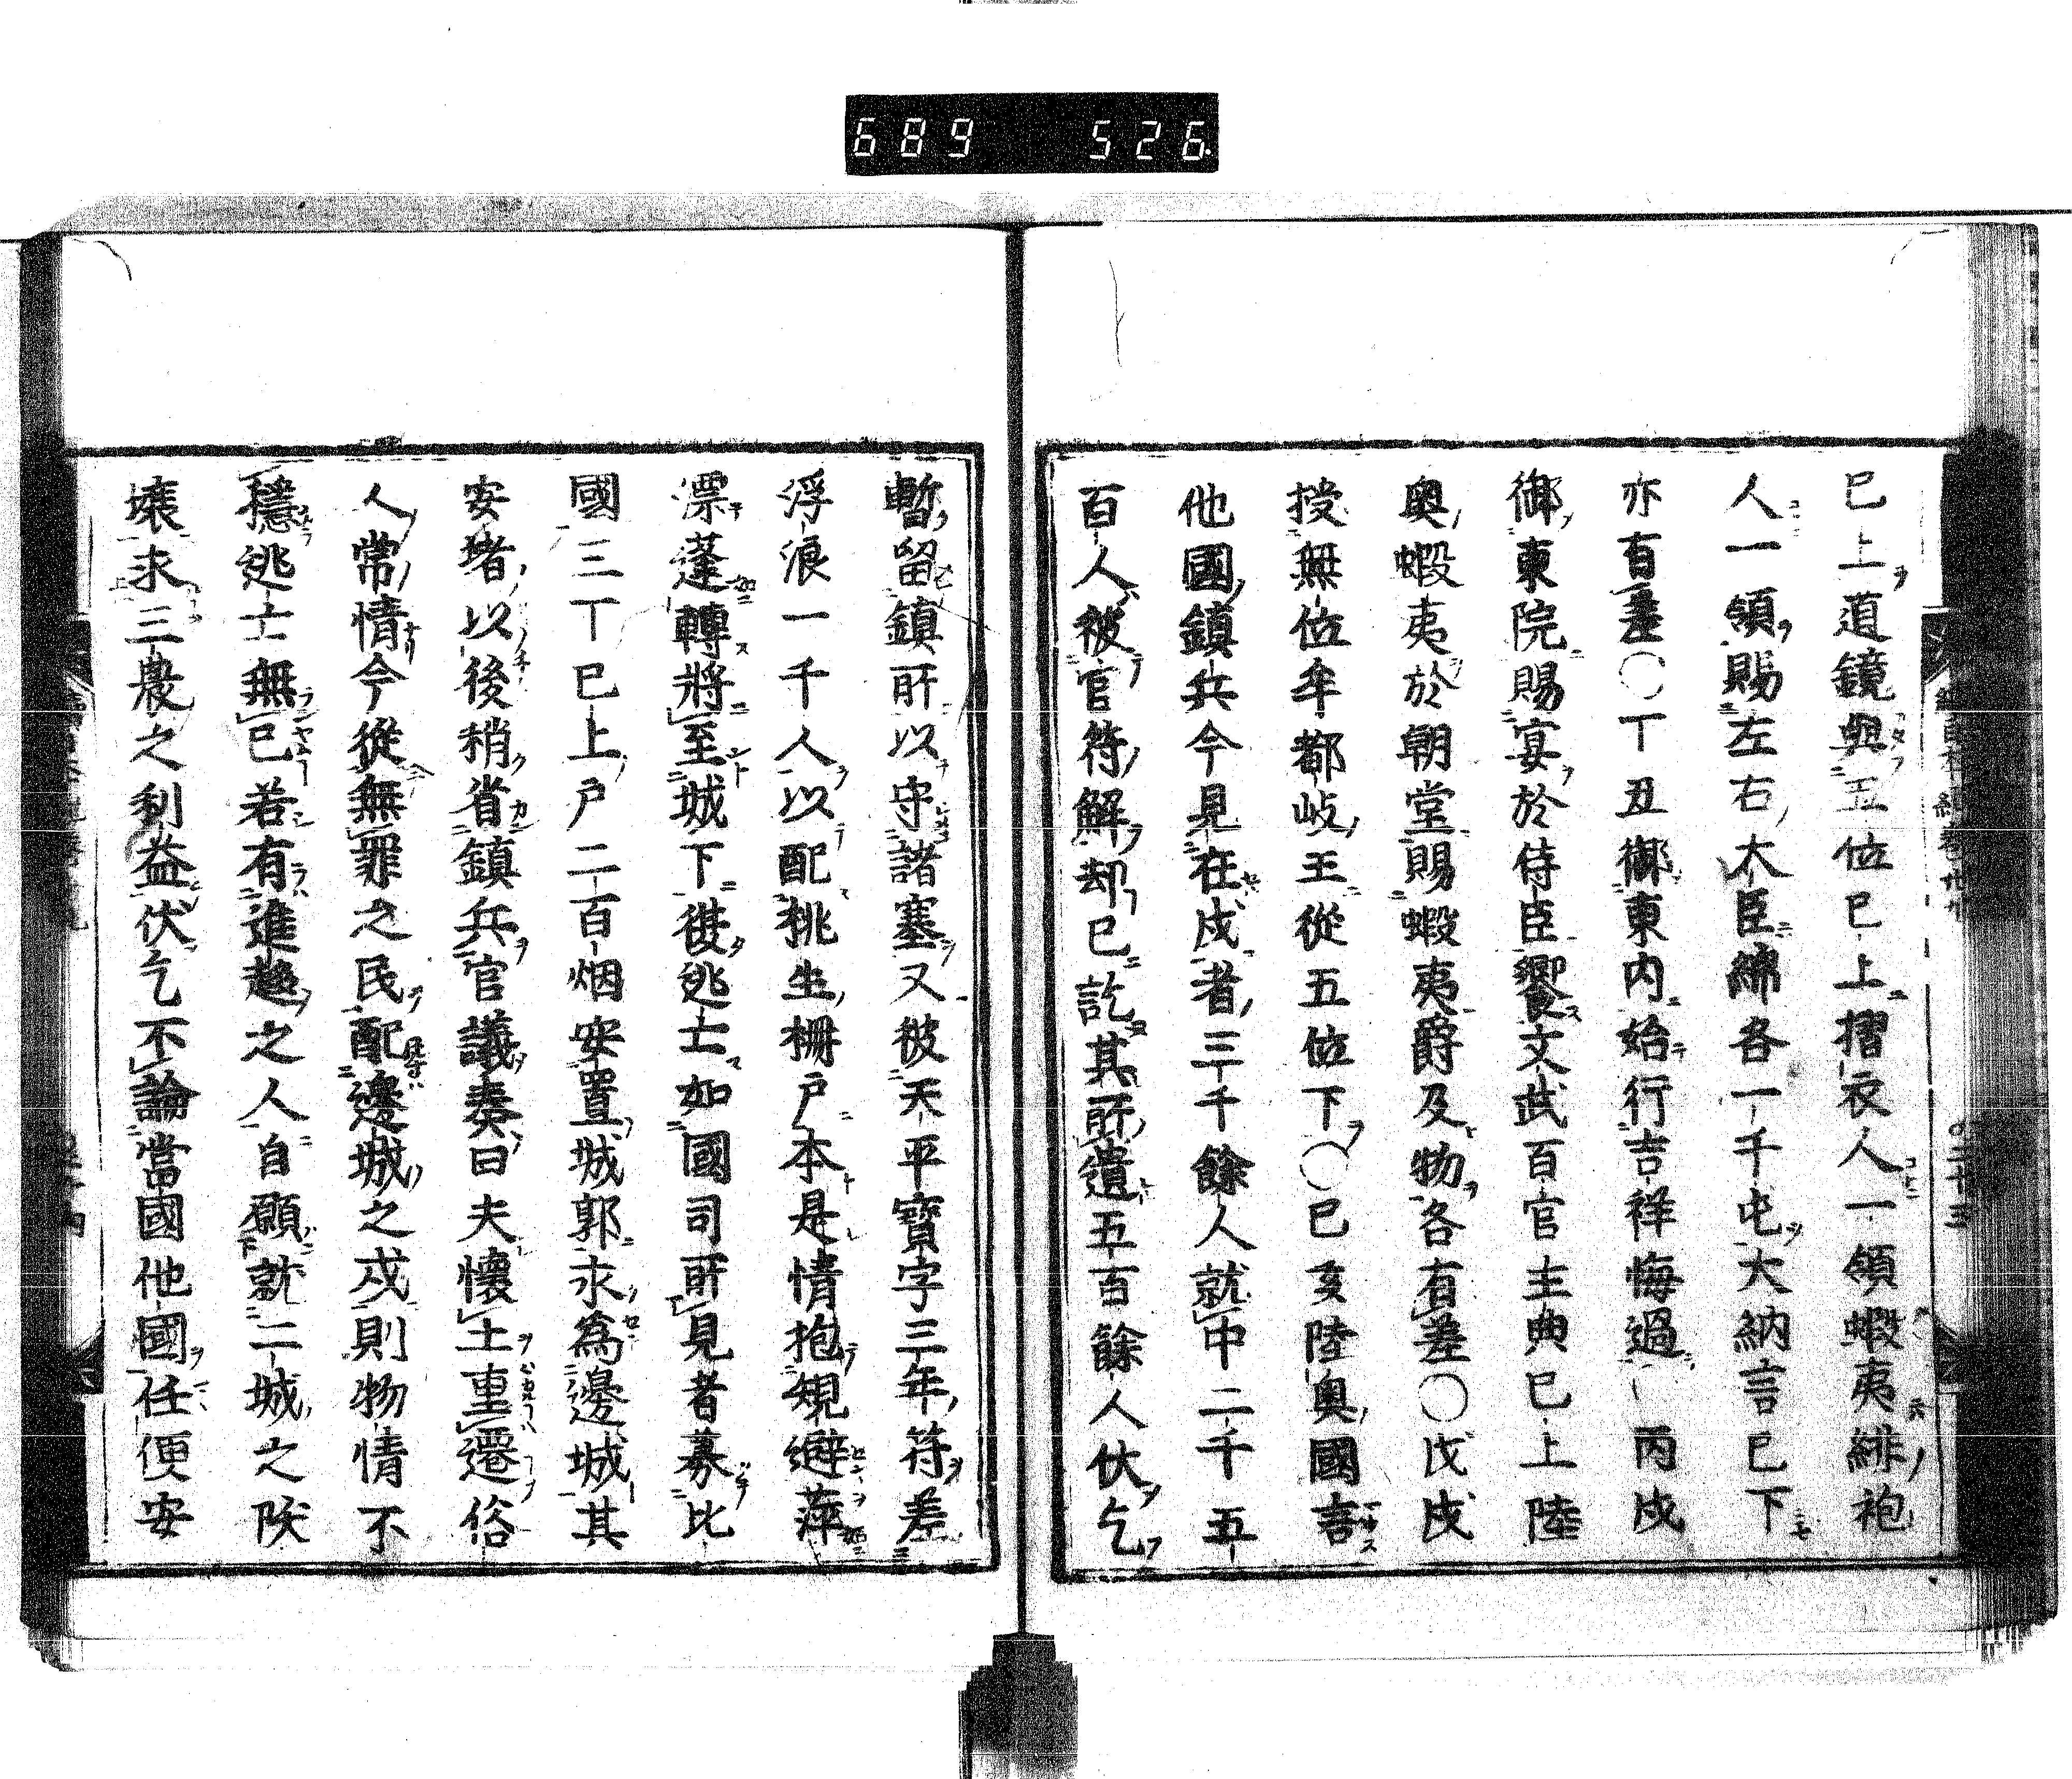 689 526
已上道鏡與五位已上摺衣人一領蝦夷緋袍
人一領賜左右大臣綿各一千屯大納言已下
亦有差○丁丑御東内始行吉祥悔過　丙戌
御東院賜宴於侍臣饗文武百官主典已上陸
奧蝦夷於朝堂賜蝦夷爵及物各有差○戊戌
授無位牟都岐王從五位下○己亥陸奧國言
他國鎮兵今見在戍者三千餘人就中二千五
百人被官符解却已訖其所遺五百餘人伏乞
暫留鎮所以守諸塞又被天平寶字三年符差
浮浪一千人以配桃生柵戶本是情抱規避萍
漂蓬轉將至城下復逃亡如國司所見者募比
國三丁已上戶二百烟安置城郭永爲邊城其
安堵以後稍省鎮兵官議奏曰夫懷土重遷俗
人常情今從無罪之民配邊城之戍則物情不
穩逃亡無已若有進趨之人自願就二城之陜
壤求三農之利益伏乞不論當國他國任便安